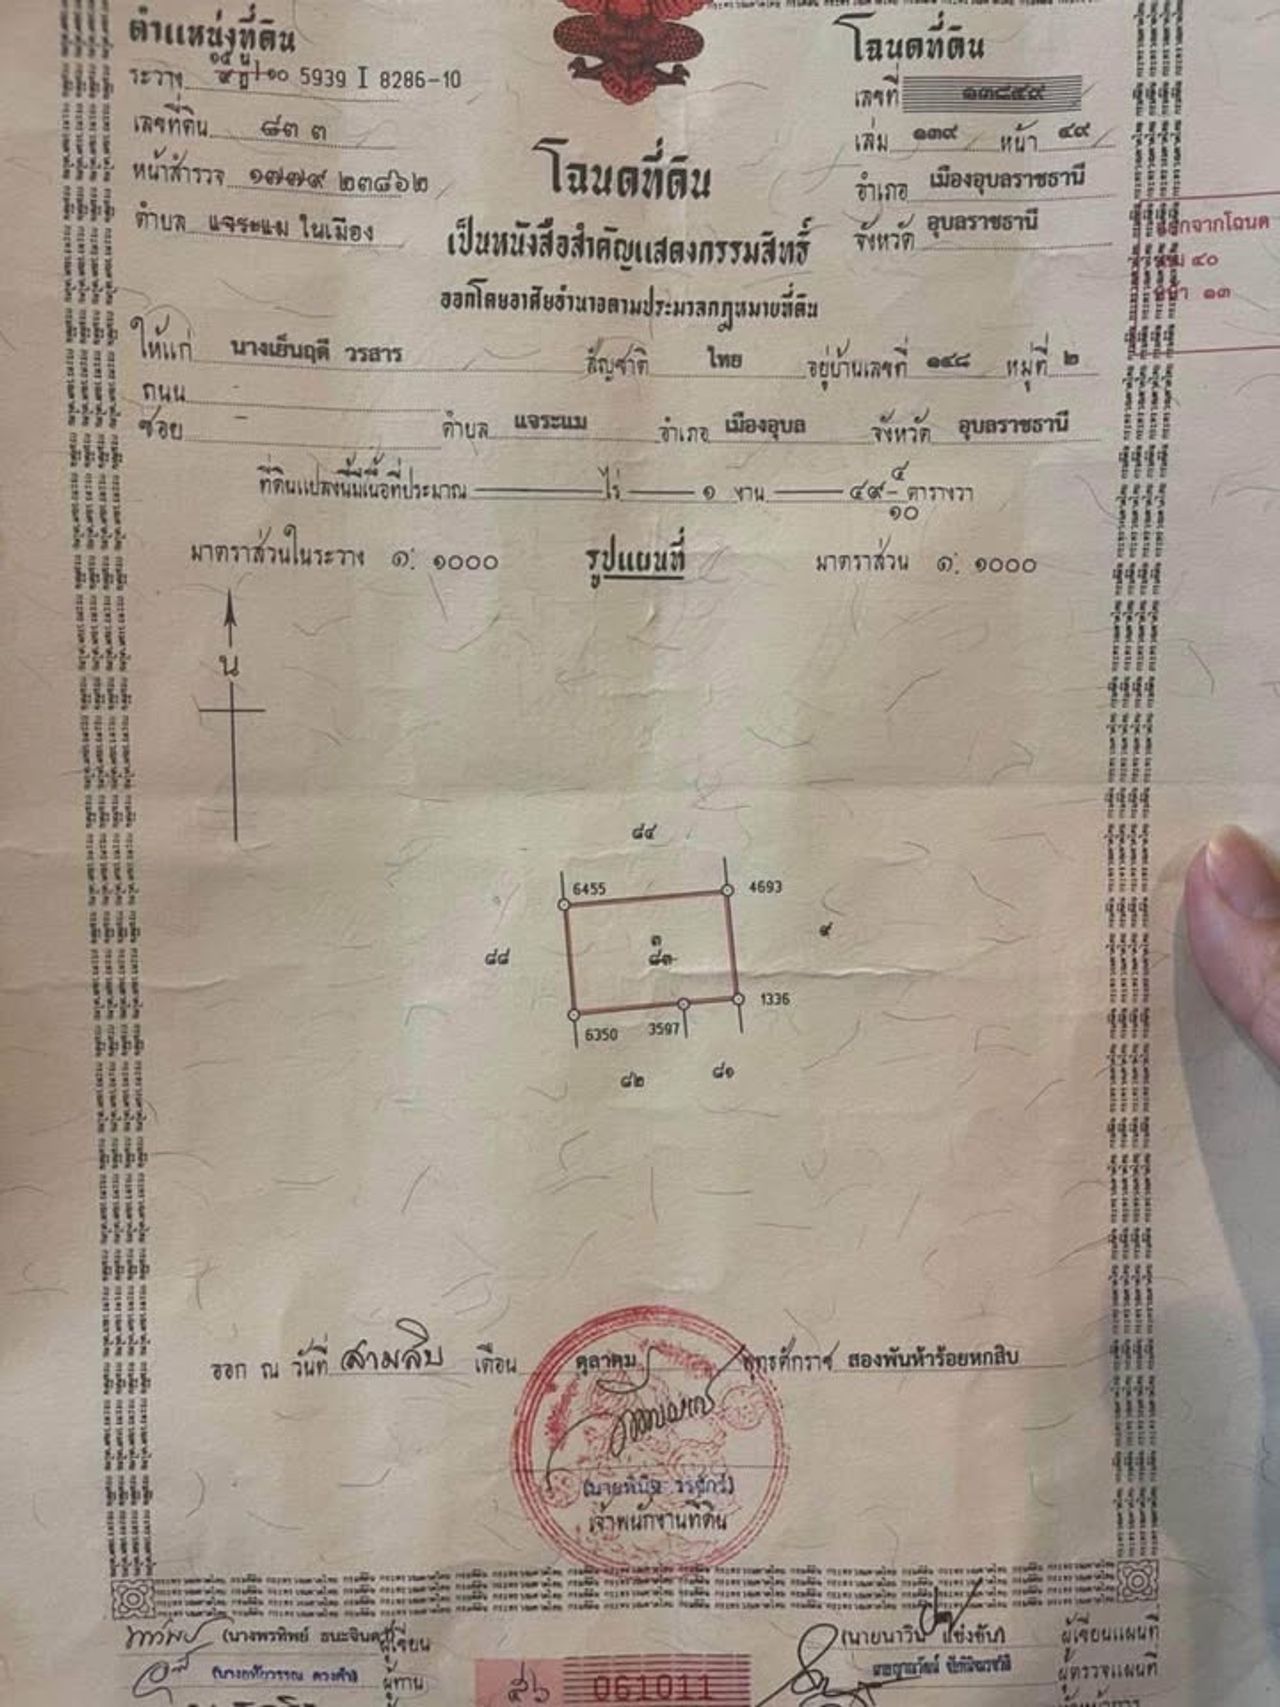 ตำแหน่งที่ดิน
๑๕ น
ระวาง ๑๐ 5939 I 8286-10
เลขที่ดิน ๘๓ ๓
หน้าสำรวจ ๑๗๗๙ ๒๓๘๖๒
ตำบล แจระแม ในเมือง
โฉนดที่ดิน
เลขที่ ๑๓๘๔๙
เล่ม ๑๓๙ หน้า ๔๙
อำเภอ เมืองอุบลราชธานี
จังหวัด อุบลราชธานี
โฉนดที่ดิน
เป็นหนังสือสำคัญแสดงกรรมสิทธิ์
ออกโดยอาศัยอำนาจตามประมวลกฎหมายที่ดิน
กจากโฉนด
๔๐
๑๓
ให้แก่ นางเย็นฤดี วรสาร สัญชาติ ไทย อยู่บ้านเลขที่ ๑๔๘ หมู่ที่ ๒
ถนน -
ซอย - ตำบล แจระแม อำเภอ เมืองอุบล จังหวัด อุบลราชธานี
ที่ดินแปลงนี้มีเนื้อที่ประมาณ ไร่ ๑ งาน ๔๙ ๔/๑๐ ตารางวา
มาตราส่วนในระวาง ๑: ๑๐๐๐ รูปแผนที่ มาตราส่วน ๑: ๑๐๐๐
น
๘๔
6455 4693
๘๘ ๓ ๙
๘๓
6350 3597 1336
๘๒ ๘๑
ออก ณ วันที่ สามสิบ เดือน ตุลาคม พุทธศักราช สองพันห้าร้อยหกสิบ
เจ้าพนักงานที่ดิน
กระทรวงมหาดไทย กรมที่ดิน
(นางพรทิพย์ ธนะจินดา) ผู้เขียน
(นายนาวิน แข่งขัน) ผู้เขียนแผนที่
ผู้ทาน
ผู้ตรวจแผนที่
061011